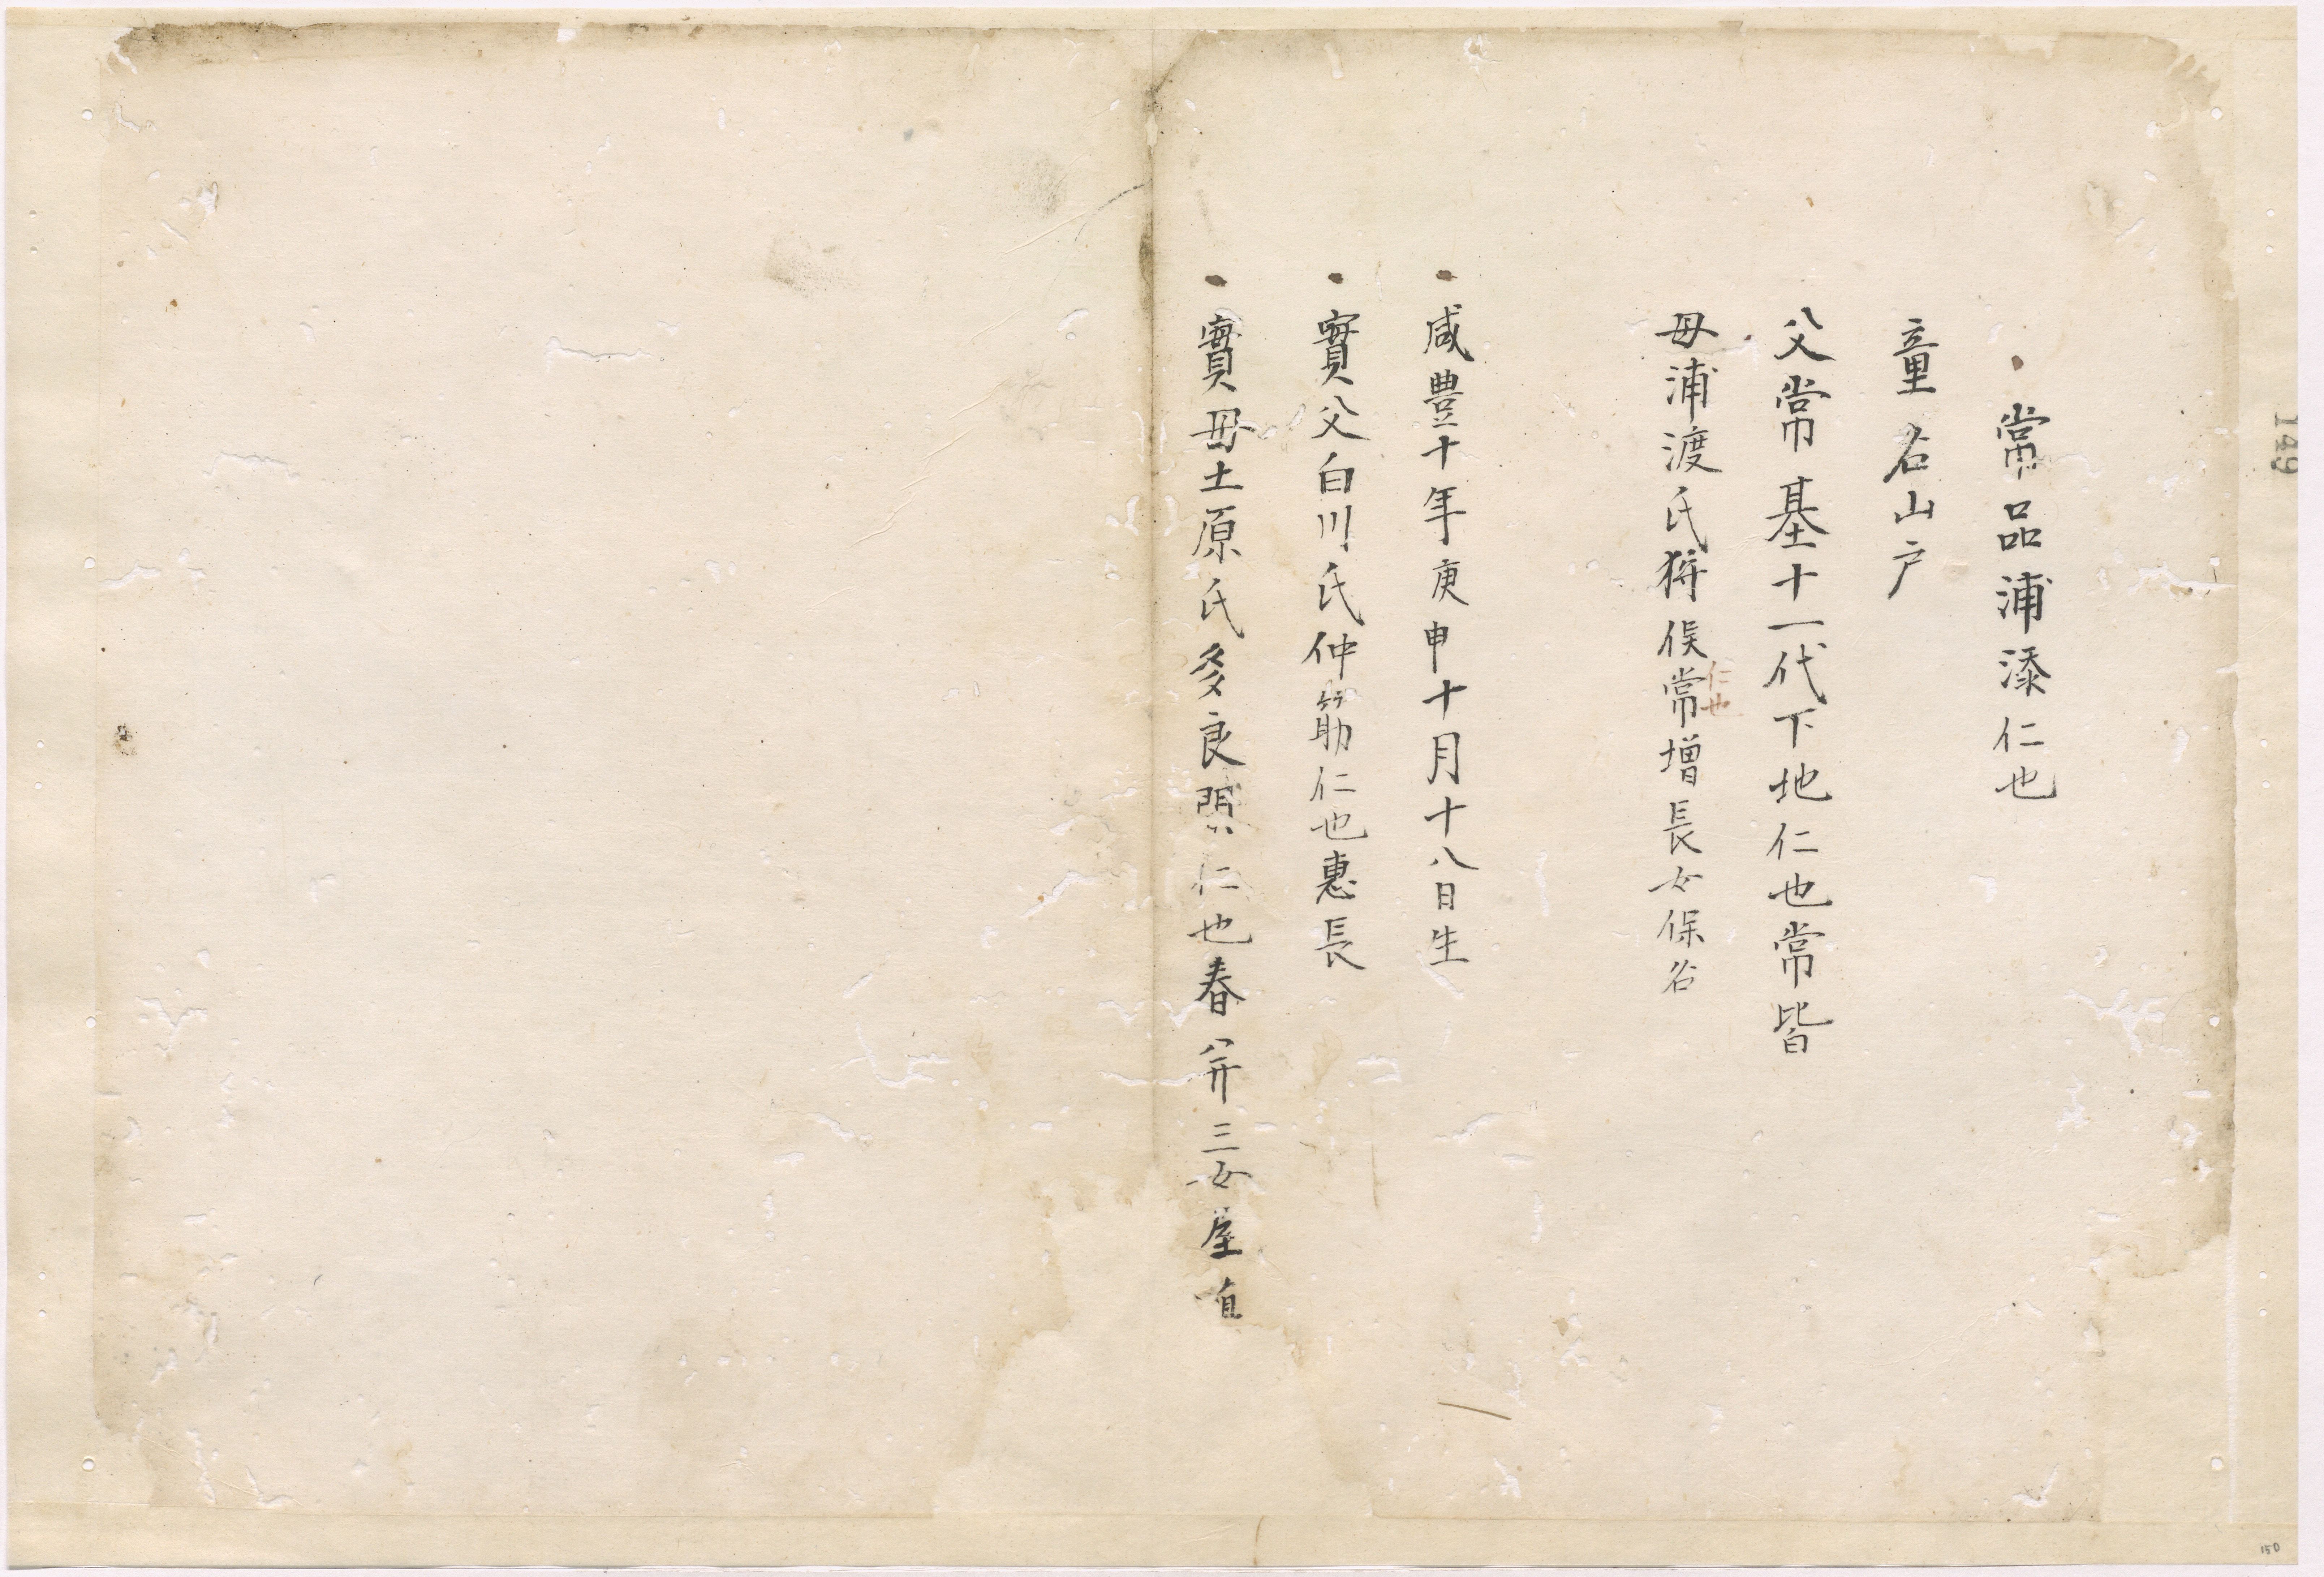 ・常品浦添仁也
童名山戸
父常基十一代下地仁也常皆
母浦渡氏狩俣仁也常増長女保名
・咸豊十年庚申十月十八日生
・實父白川氏仲筋仁也惠長
・實母土原氏多良間仁也春 三女屋
149
150